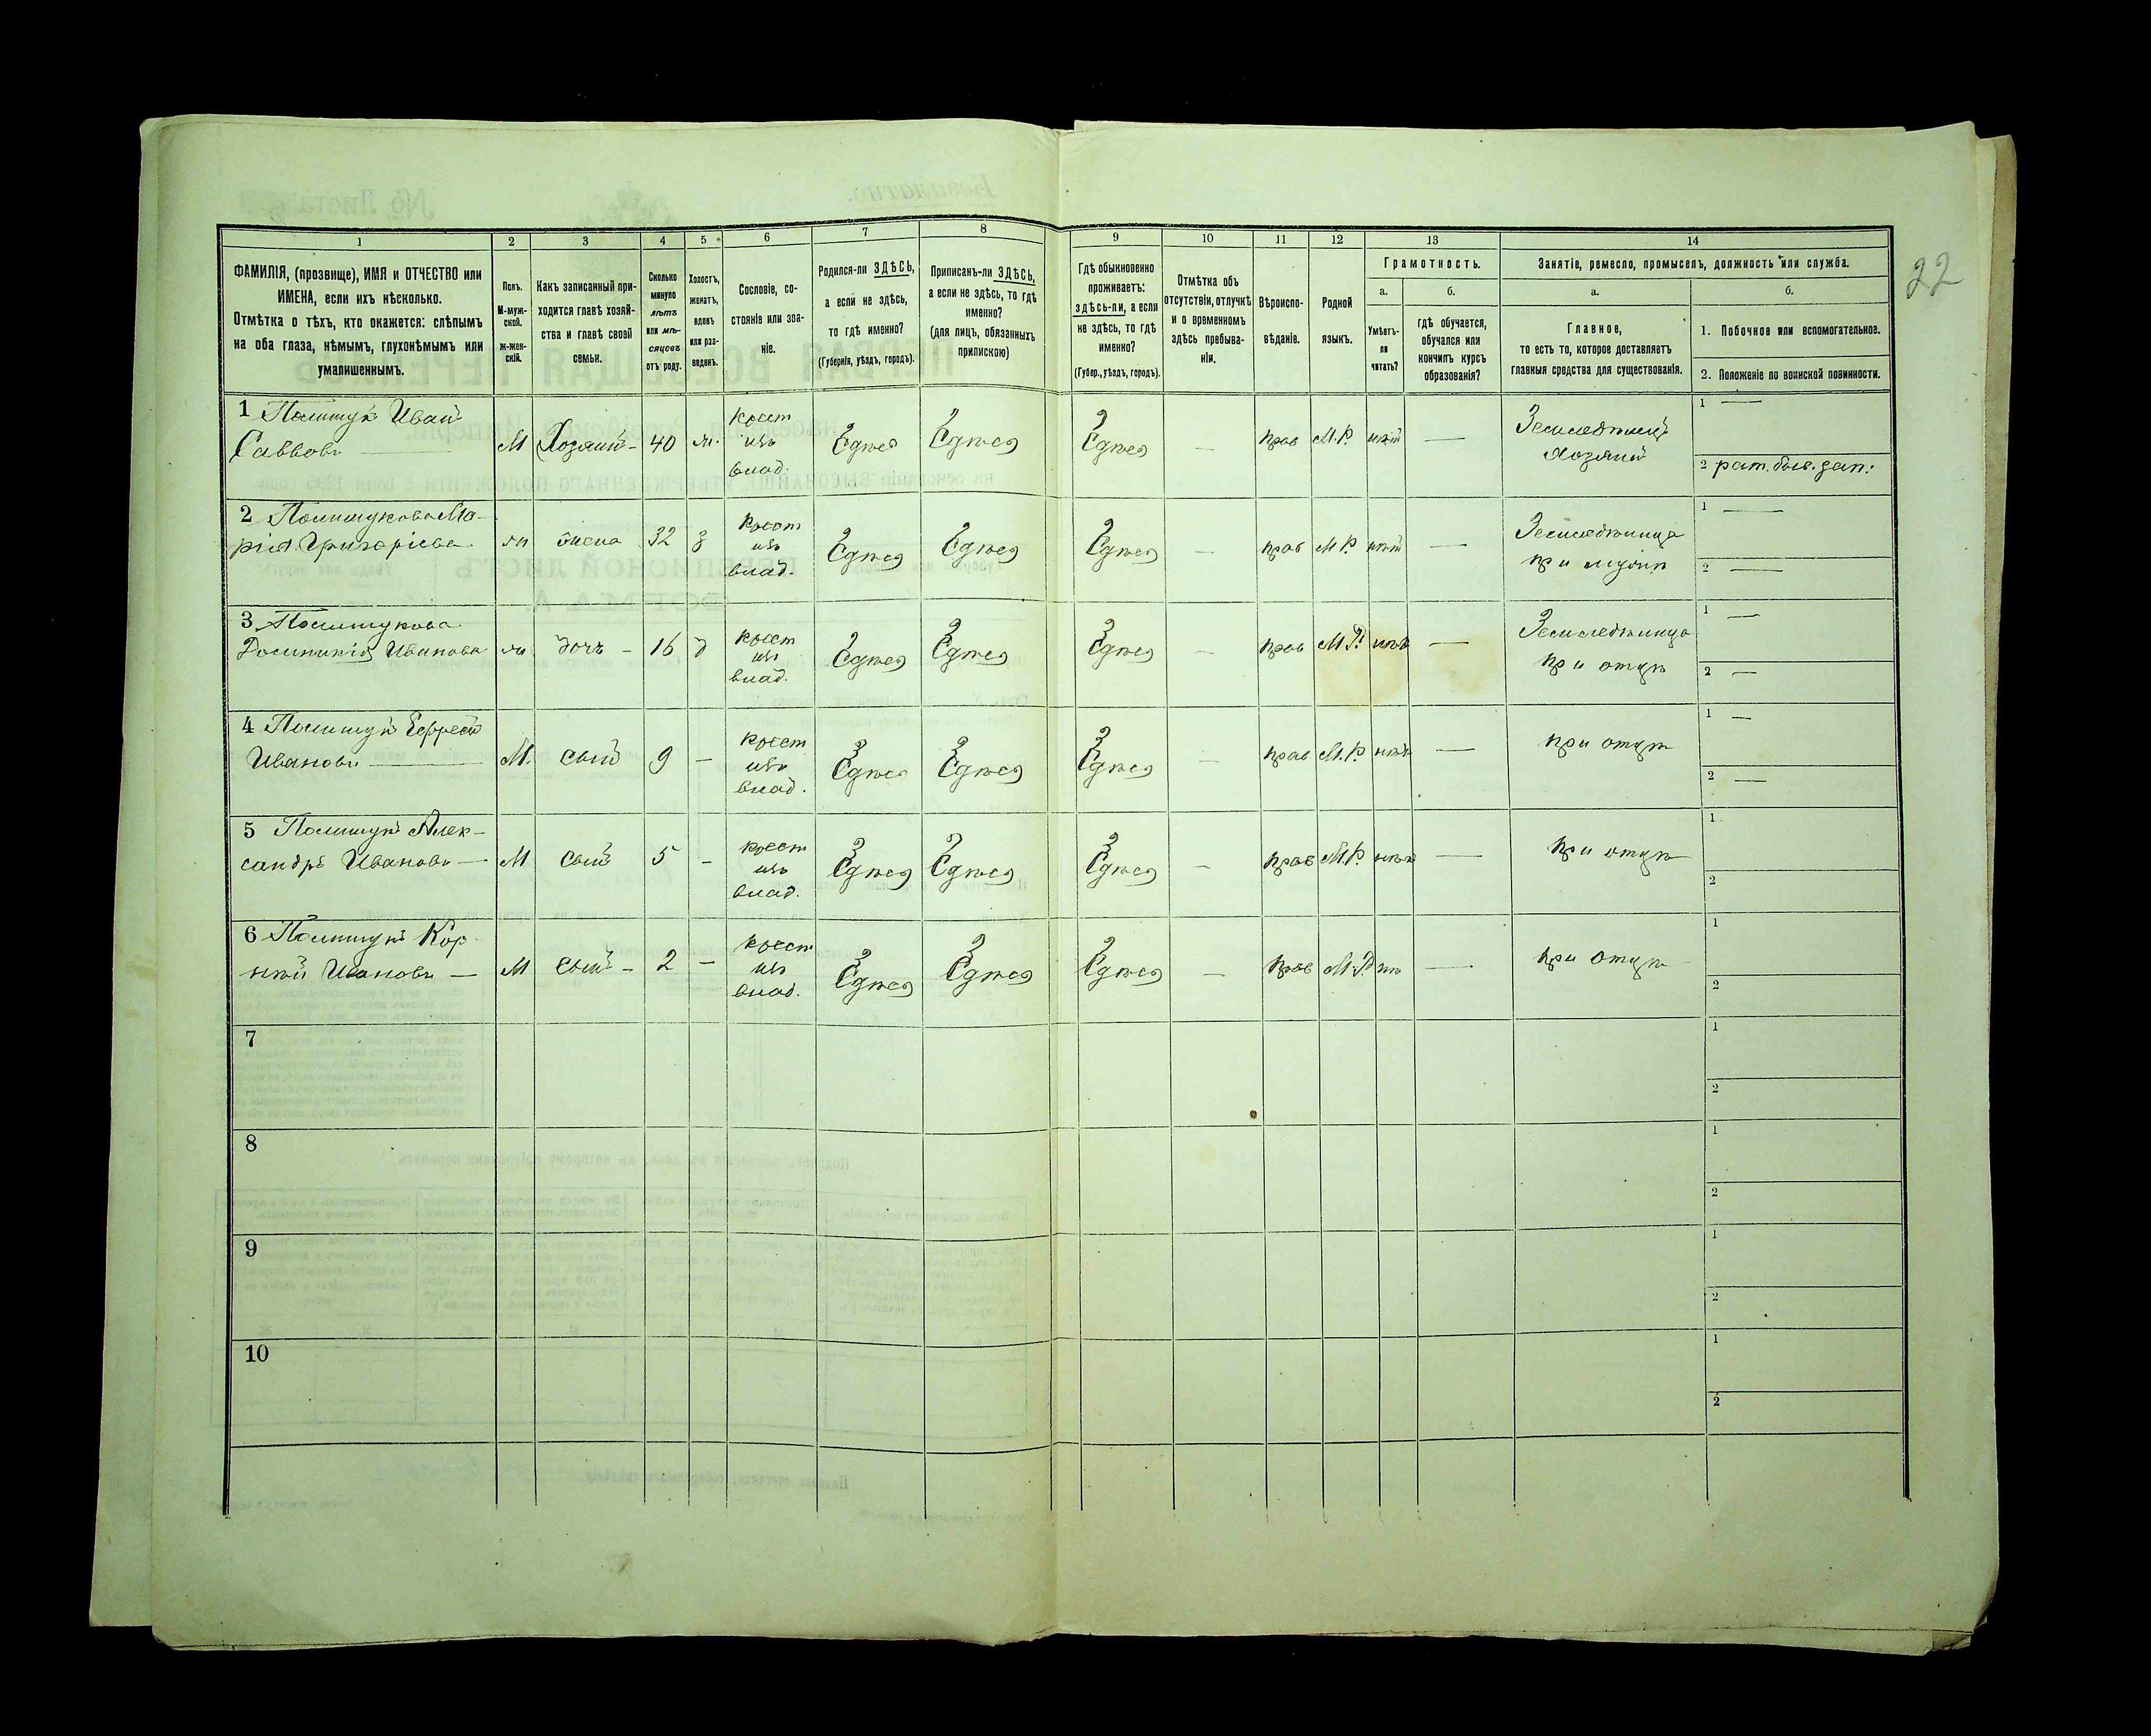 22
1 2 3 4 5 6 7 8 9 10 11 12 13 14
ФАМИЛІЯ, (прозвище), ИМЯ и ОТЧЕСТВО или
ИМЕНА, если ихъ нѣсколько.
Отмѣтка о тѣхъ, кто окажется: слѣпымъ
на оба глаза, нѣмымъ, глухонѣмымъ или
умалишеннымъ.
Полъ.
М-муж-
ской.
Ж-жен-
скій.
Какъ записанный при-
ходится главѣ хозяй-
ства и главѣ своей
семьи.
Сколько
минуло
лѣтъ
или мѣ-
сяцевъ
отъ роду.
Холостъ,
женатъ,
вдовъ
или раз-
веденъ.
Сословіе, со-
стояніе или зва-
ніе.
Родился-ли ЗДѢСЬ,
а если не здѣсь,
то гдѣ именно?
(Губернія, уѣздъ, городъ).
Приписанъ-ли ЗДѢСЬ,
а если не здѣсь, то гдѣ
именно?
(для лицъ, обязанныхъ
припискою)
Гдѣ обыкновенно
проживаетъ:
здѣсь-ли, а если
не здѣсь, то гдѣ
именно?
(Губер., уѣздъ, городъ).
Отмѣтка объ
отсутствіи, отлучкѣ
и о временномъ
здѣсь пребыва-
ніи.
Вѣроиспо-
вѣданіе.
Родной
языкъ.
Грамотность.
а.
Умѣетъ-
ли
читать?
б.
гдѣ обучается,
обучался или
кончилъ курсъ
образованія?
Занятіе, ремесло, промыселъ, должность или служба.
а.
Главное,
то есть то, которое доставляетъ
главныя средства для существованія.
б.
1. Побочное или вспомогательное.
2. Положеніе по воинской повинности.
1 Полищукъ Иванъ
Саввовъ
М Хозяинъ 40 ж.
крест
изъ
влад.
Здѣсь Здѣсь Здѣсь — прав М.Р. нѣтъ —
Земледѣлецъ
Хозяинъ
1 —
2 рат.
2 Полищукова Ма-
рія Григоріева
ж жена 32 з
крест
изъ
влад.
Здѣсь Здѣсь Здѣсь — прав М.Р. нѣтъ —
Земледѣлица
при мужѣ
1 —
2 —
3 Полищукова
Доминикія Иванова
ж дочь 16 д
крест
изъ
влад.
Здѣсь Здѣсь Здѣсь — прав М.Р. нѣтъ —
Земледѣлица
при отцѣ
1 —
2 —
4 Полищукъ Ефремъ
Ивановъ
М. сынъ 9 —
крест
изъ
влад.
Здѣсь Здѣсь Здѣсь — прав М.Р. нѣтъ —
при отцѣ
1 —
2 —
5 Полищукъ Алек-
сандръ Ивановъ
М сынъ 5 —
крест
изъ
влад.
Здѣсь Здѣсь Здѣсь — прав М.Р. нѣтъ —
при отцѣ
1
2
6 Полищукъ Кор-
нѣй Ивановъ
М сынъ 2 —
крест
изъ
влад.
Здѣсь Здѣсь Здѣсь — прав М.Р. нѣ —
при отцѣ
1
2
7
1
2
8
1
2
9
1
2
10
1
2